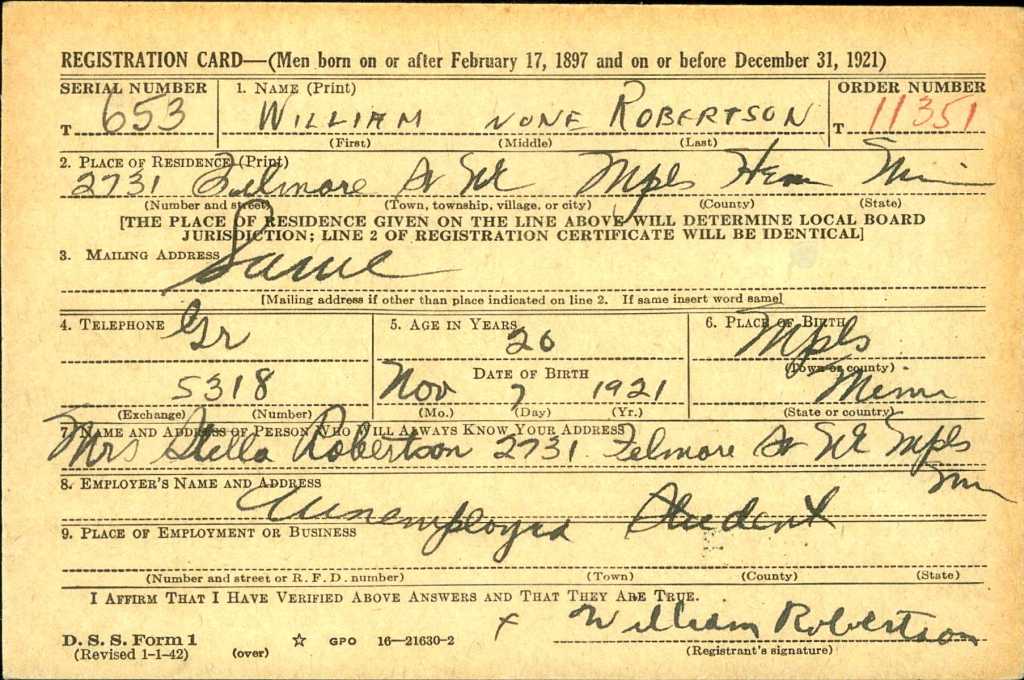 REGISTRATION CARD—(Men born on or after February 17, 1897 and on or before December 31, 1921)
SERIAL NUMBER 1. NAME (Print) ORDER NUMBER
T 653 WILLIAM NONE ROBERTSON T 11351
(First) (Middle) (Last)
2. PLACE OF RESIDENCE (Print)
2731 Filmore St NE Mpls Henn Minn
(Number and street) (Town, township, village, or city) (County) (State)
[THE PLACE OF RESIDENCE GIVEN ON THE LINE ABOVE WILL DETERMINE LOCAL BOARD
JURISDICTION; LINE 2 OF REGISTRATION CERTIFICATE WILL BE IDENTICAL]
3. MAILING ADDRESS
Same
[Mailing address if other than place indicated on line 2. If same insert word same]
4. TELEPHONE 5. AGE IN YEARS 6. PLACE OF BIRTH
Gr 20 Mpls
DATE OF BIRTH (Town or county)
5318 Nov 7 1921 Minn
(Exchange) (Number) (Mo.) (Day) (Yr.) (State or country)
7. NAME AND ADDRESS OF PERSON WHO WILL ALWAYS KNOW YOUR ADDRESS
Mrs Stella Robertson 2731 Felmore St NE Mpls
Minn
8. EMPLOYER'S NAME AND ADDRESS
Unemployed Student
9. PLACE OF EMPLOYMENT OR BUSINESS
(Number and street or R. F. D. number) (Town) (County) (State)
I AFFIRM THAT I HAVE VERIFIED ABOVE ANSWERS AND THAT THEY ARE TRUE.
D. S. S. Form 1 ☆ GPO 16—21630-2 x William Robertson
(Revised 1-1-42) (over) (Registrant's signature)